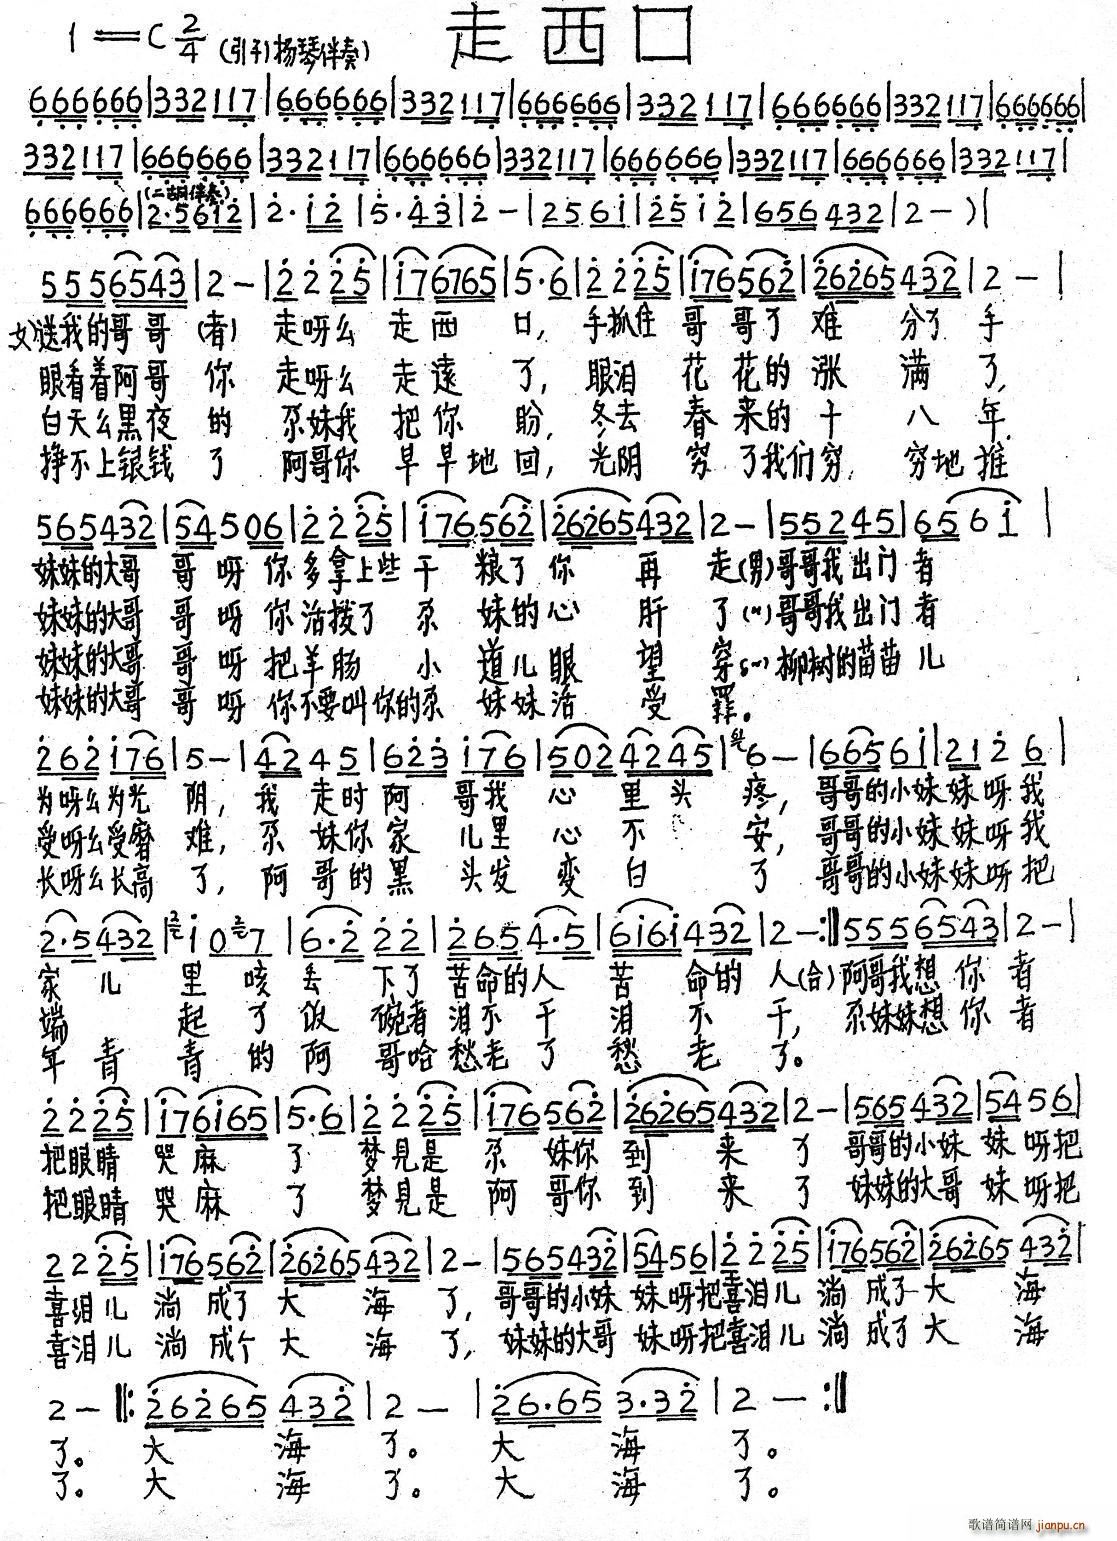 走西口
1=C 2/4 (引子)杨琴伴奏)
666666|332117|666666|332117|666666|332117|666666|332117|666666|
332117|666666|332117|666666|332117|666666|332117|666666|332117|
(二胡伴奏)
666666|2·5612|2·12|5·43|2-|2561|2512|656432|2-)|
5556543|2-|2225|176765|5·6|2225|176562|26265432|2-|
女)送我的哥哥(者)走呀么走西口,手抓住哥哥了难分了手
眼看着阿哥你走呀么走远了,眼泪花花的涨满了,
白天么黑夜的尕妹我把你盼,冬去春来的十八年,
挣不上银钱了阿哥你早早地回,光阴穷了我们穷,穷地推
565432|54506|2225|176562|26265432|2-|55245|6561|
妹妹的大哥哥呀你多拿上些干粮了你再走(男)哥哥我出门者
妹妹的大哥哥呀你活拨了尕妹的心肝了(〃)哥哥我出门者
妹妹的大哥哥呀把羊肠小道儿眼望穿(〃)柳树的苗苗儿
妹妹的大哥哥呀你不要叫你的尕妹妹活受罪。
262176|5-|4245|623176|5024245|6-|66561|2126|
为呀么为光阴,我走时阿哥我心里头疼,哥哥的小妹妹呀我
受呀么受磨难,尕妹你家儿里心不安,哥哥的小妹妹呀我
长呀么长高了,阿哥的黑头发变白了哥哥的小妹妹呀把
2·5432|107|6·222|2654·5|6161432|2-:‖5556543|2-|
家儿里咳丢下了苦命的人苦命的人(合)阿哥我想你者
端起了饭碗者泪不干泪不干,尕妹妹想你者
年青青的阿哥哈愁老了愁老了。
2225|176165|5·6|2225|176562|26265432|2-|565432|5456|
把眼睛哭麻了梦见是尕妹你到来了哥哥的小妹妹呀把
把眼睛哭麻了梦见是阿哥你到来了妹妹的大哥妹呀把
2225|176562|26265432|2-|565432|5456|2225|176562|26265432|
喜泪儿淌成了大海了,哥哥的小妹妹呀把喜泪儿淌成了大海
喜泪儿淌成个大海了,妹妹的大哥妹呀把喜泪儿淌成了大海
2-‖:26265432|2-|26·653·32|2-:‖
了。大海了。大海了。
了。大海了。大海了。
歌谱简谱网 jianpu.cn